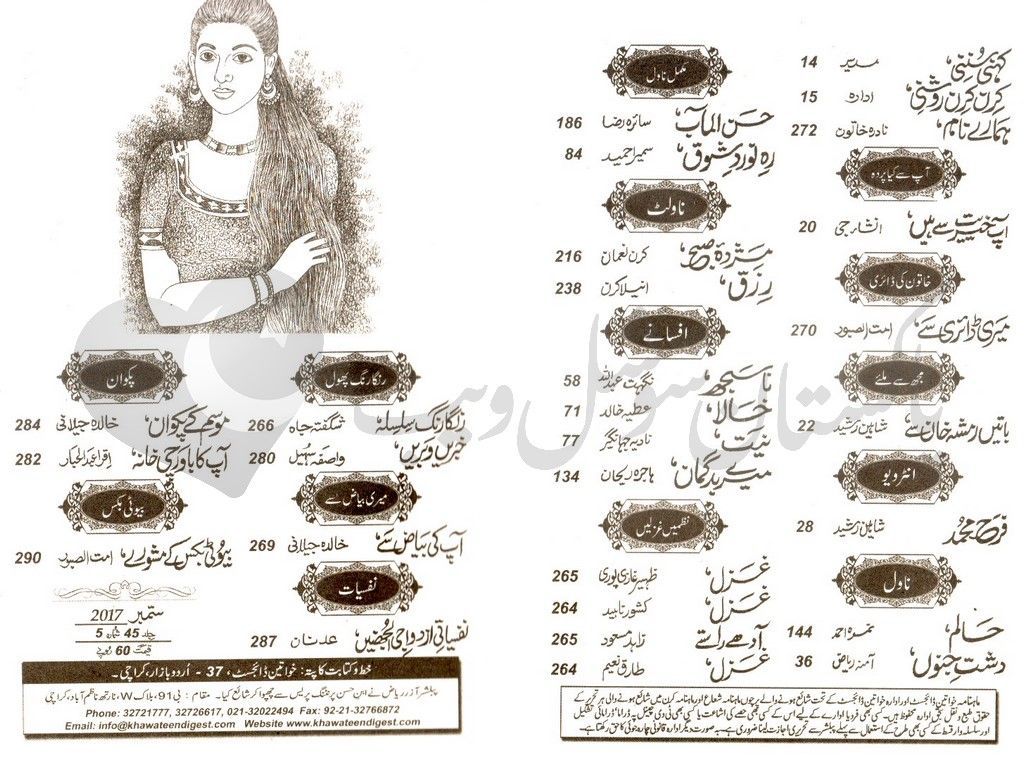 کہنی سُننی، مدیر 14
کِرن کِرن روشنی، ادارہ 15
ہمارے نام، نادرہ خاتون 272
آپ سے کیا پردہ
آپ خیریت سے ہیں، انشا جی 20
خاتون کی ڈائری
میری ڈائری سے، امت الصبور 270
مجھ سے ملیے
باتیں رمشہ خان سے، شاہین رشید 22
انٹرویو
فرح محمد، شاہین رشید 28
ناول
حالم، نمرہ احمد 144
دشتِ جنوں، آمنہ ریاض 36
مکمل ناول
حسن المآب، سائرہ رضا 186
رہ نوردِ شوق، سمیرا حمید 84
ناولٹ
مژدۂ صبح، کرن نعمان 216
رزق، انیلا کرن 238
افسانے
ناسمجھ، نگہت عبداللہ 58
خالا، عطیہ خالد 71
نیت، نادیہ جہانگیر 77
میرے بدگمان، ہاجرہ ریحان 134
نظمیں غزلیں
غزل، ظہیر غازی پوری 265
غزل، کشور ناہید 264
آدھے راستے، زاہد مسعود 265
غزل، طارق نعیم 264
رنگارنگ پھول
رنگارنگ سلسلہ، شگفتہ جاہ 266
خبریں وبریں، واصفہ سہیل 280
میری بیاض سے
آپ کی بیاض سے، خالدہ جیلانی 269
نفسیات
نفسیاتی ازدواجی الجھنیں، عدنان 287
پکوان
موسم کے پکوان، خالدہ جیلانی 284
آپ کا باورچی خانہ، اقرا عبدالجبار 282
بیوٹی بکس
بیوٹی بکس کے مشورے، امت الصبور 290
ستمبر 2017
جلد 45 شمارہ 5
قیمت 60 روپے
خط و کتابت کا پتہ: خواتین ڈائجسٹ، 37 - اُردو بازار، کراچی۔
پبلشر آزر ریاض نے ابن حسن پرنٹنگ پریس سے چھپوا کر شائع کیا۔ مقام: بی 91، بلاک W، نارتھ ناظم آباد، کراچی
Phone: 32721777, 32726617, 021-32022494 Fax: 92-21-32766872
Email: info@khawateendigest.com Website www.khawateendigest.com
ماہنامہ خواتین ڈائجسٹ اور ادارہ خواتین ڈائجسٹ کے تحت شائع ہونے والے پرچوں ماہنامہ شعاع اور ماہنامہ کرن میں شائع ہونے والی ہر تحریر کے
حقوق طبع و نقل بحق ادارہ محفوظ ہیں۔ کسی بھی فرد یا ادارے کے لیے اس کے کسی بھی حصے کی اشاعت یا کسی بھی ٹی وی چینل پہ ڈراما، ڈرامائی تشکیل
اور سلسلہ وار قسط کے کسی بھی طرح کے استعمال سے پہلے پبلشر سے تحریری اجازت لینا ضروری ہے۔ بہ صورت دیگر ادارہ قانونی چارہ جوئی کا حق رکھتا ہے۔
پاکستانی سوسل ویب